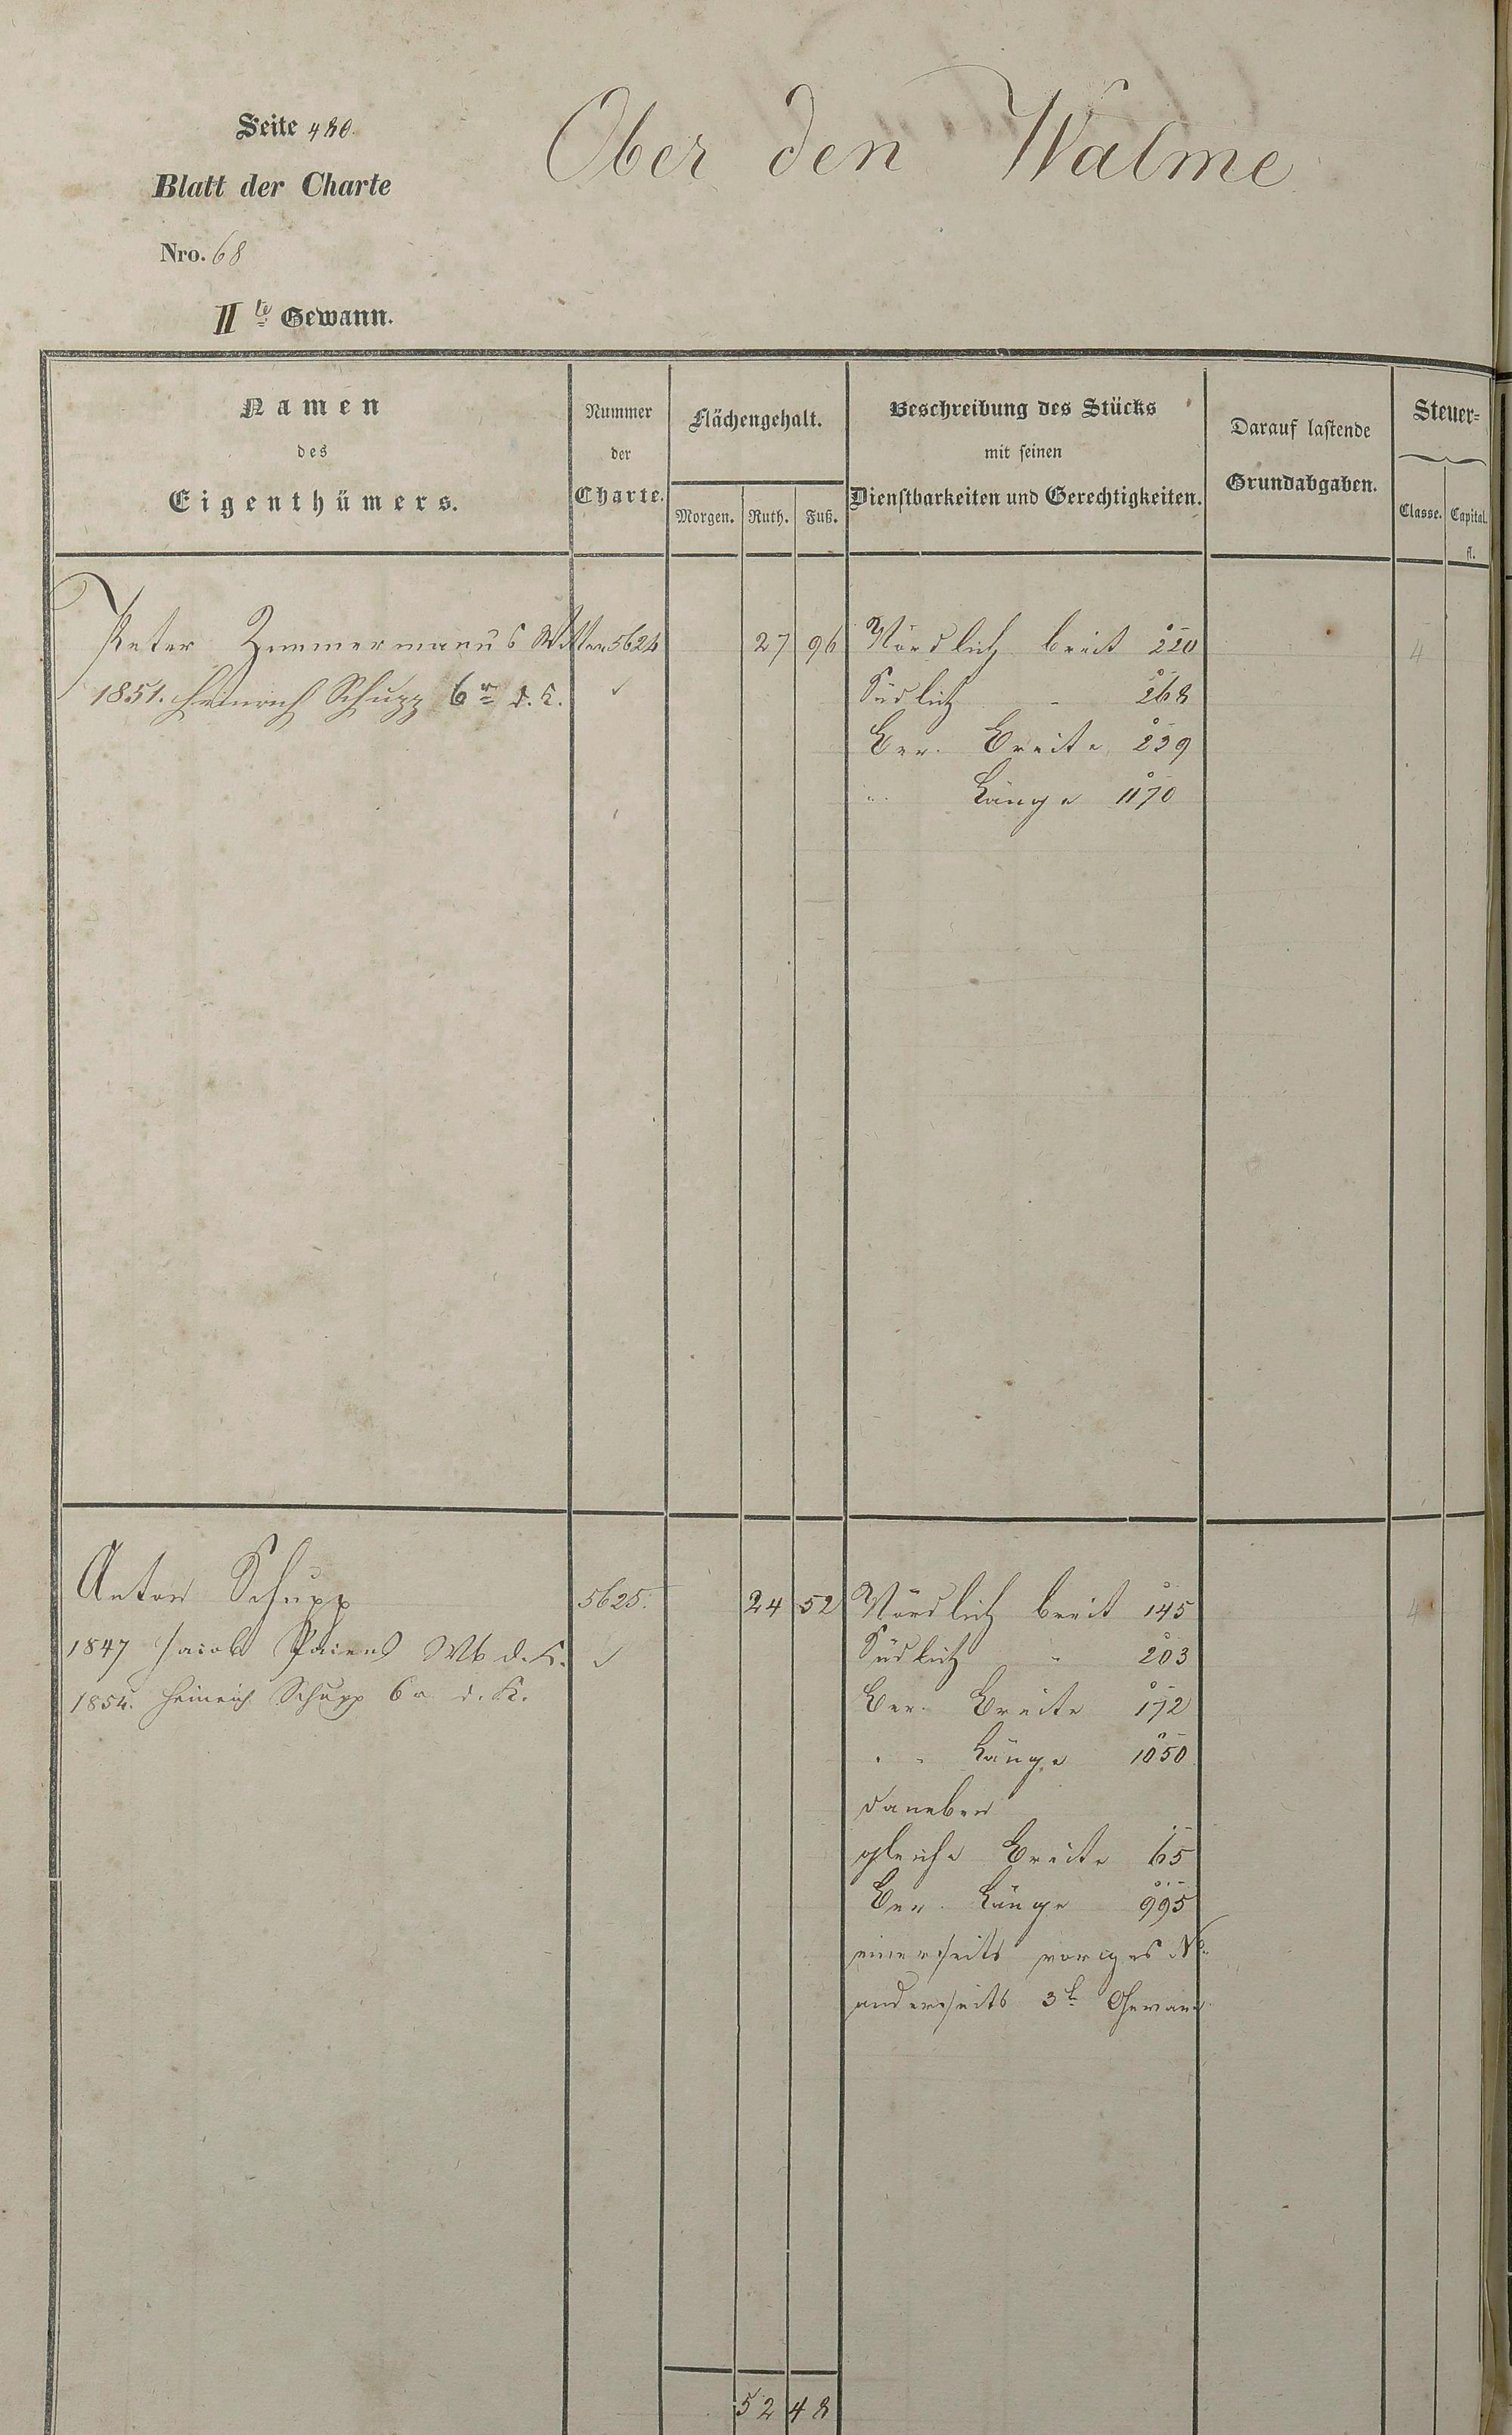 Seite 480.
Ober den Walme
Blatt der Charte
Nro. 68
II te Gewann.
Namen
des
Eigenthümers.
Nummer
der
Charte.
Flächengehalt.
Morgen. Ruth. Fuß.
Beschreibung des Stücks
mit seinen
Dienstbarkeiten und Gerechtigkeiten.
Darauf lastende
Grundabgaben.
Steuer=
Classe. Capital.
fl.
Peter Zimmermanns 5624 27 96 Nördlich breit 220 4
1851. Heinrich Schupp 6r d. K. ✓ Südlich " 268
Ber. Breite 239
" Länge 1170
Anton Schupp 5625. 24 52 Nördlich breit 145 4
1847 Jacob Wb d. K. ✓ Südlich " 203
1854. Heinrich Schupp 6r d. K. Ber. Breite 172
" " Länge 1050
daneben
gleiche Breite 65
Ber. Länge 995
einerseits voriges No.
anderseits 3te Gewann
52 48